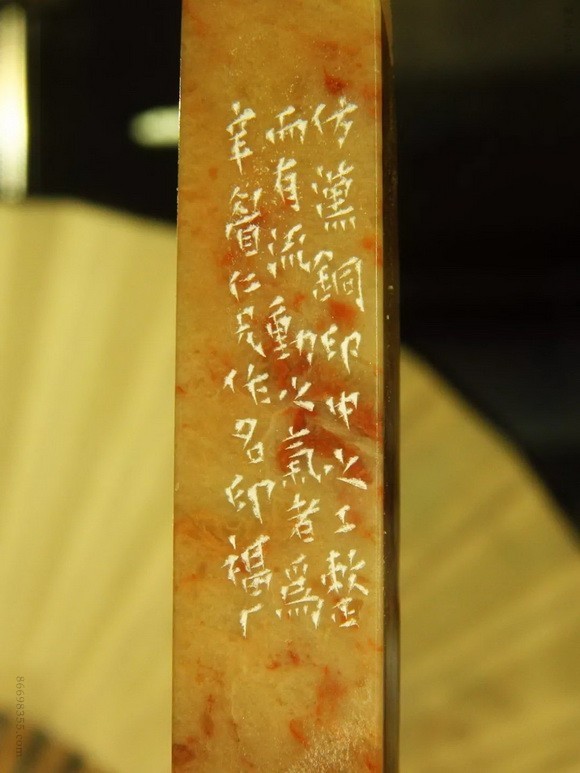 仿漢銅印中之工整
而有流動之氣者爲
羊仁兄作名印福厂
86698355.com